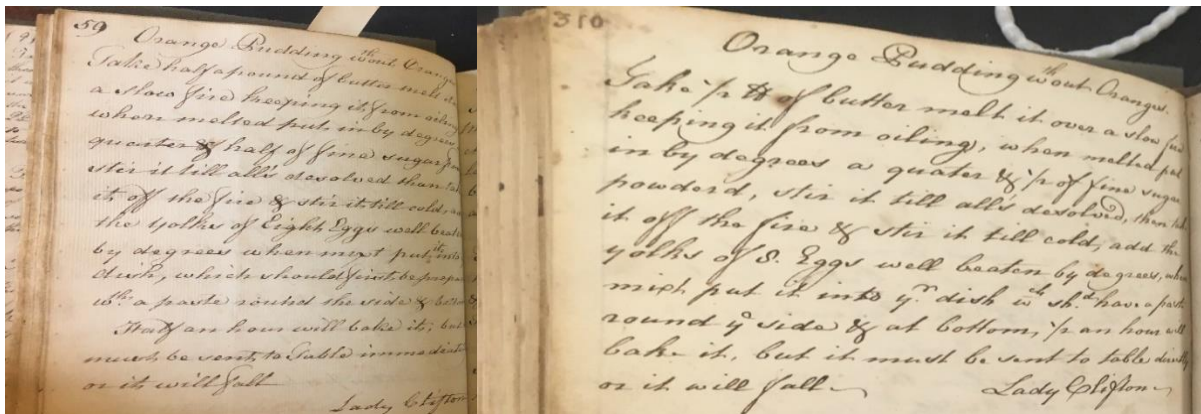 59
Orange Pudding wth.out Oranges
Take half a pound of butter melt it
a slow fire keeping it from oiling
when melted put in by degrees
quarter & half of fine sugar
stir it till all's desolved than
it off the fire & stir it till cold,
the yolks of Eight Eggs well beaten
by degrees when mixt put it into
dish, which should first be
wth. a paste round the side &
Half an hour will bake it; but
must be sent to Table immediately
or it will fall
Lady Clifton
310
Orange Pudding wth.out Oranges.
Take 1/2 ℔ of butter melt it over a slow fire
keeping it from oiling, when melted put
in by degrees a quater & 1/2 of fine sugar
powderd, stir it till all's desolved, then take
it off the fire & stir it till cold, add the
yolks of 8. Eggs well beaten by degrees, when
mixt put it into yr. dish wch. shd. have a paste
round ye side & at bottom, 1/2 an hour will
bake it, but it must be sent to table directly
or it will fall
Lady Clifton